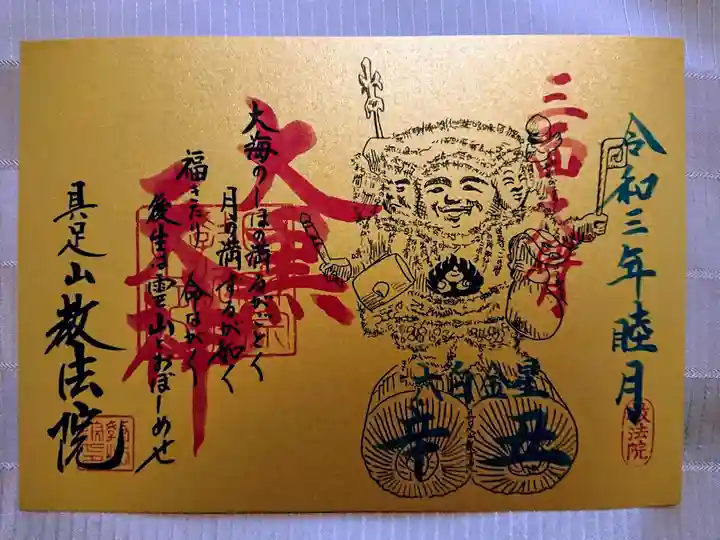 令和三年睦月
三面大黒天
六白金星
辛丑
大黒
天神
大海のしほの満るがごとく
月の満するが如く
福きたり命ながく
後生は霊山とおぼしめせ
具足山教法院
教法院